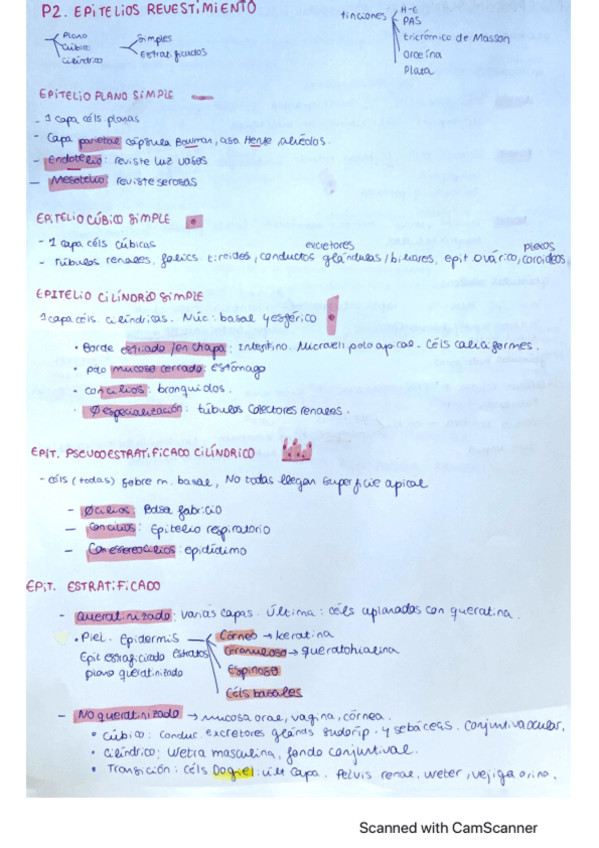 P2. EPITELIOS REVESTIMIENTO
Plano
Cúbico
Cilíndrico
Simples
Estratificados
tinciones
H-E
PAS
tricrómico de Masson
Orceína
Plata
EPITELIO PLANO SIMPLE
- 1 capa céls planas
- Capa parietal cápsula Bowman, asa Henle, alvéolos.
- Endotelio: reviste luz vasos
- Mesotelio: reviste serosas
EPITELIO CÚBICO SIMPLE
- 1 capa céls cúbicas
excretores
plexos
- Túbulos renales, folics tiroides, conductos glándulas/biliares, epit ovárico, coroideos
EPITELIO CILÍNDRIO SIMPLE
1 capa céls. cilíndricas. Núc: basal y esférico
• Borde estriado/en chapa: Intestino. Microvelli polo apical. Céls caliciformes.
• polo mucoso cerrado: estómago
• con cilios: bronquidos.
• Ø especialización: túbulos colectores renales.
EPIT. PSEUDOESTRATIFICADO CILÍNDRICO
- céls (todas) sobre m. basal, NO todas llegan superficie apical
- Ø cilios: Bolsa fabricio
- Con cilios: Epitelio respiratorio
- Con estereocilios: epidídimo
EPIT. ESTRATIFICADO
- Queratinizado: varias capas. Última: céls aplanadas con queratina.
• Piel. Epidermis
Epit estratificado estratos
plano queratinizado
Córneo → keratina
Granuloso → queratohialina
Espinoso
Céls basales
- No queratinizado → mucosa oral, vagina, córnea.
• Cúbico: Conduc. excretores glánds sudoríp. y sebáceas. Conjuntiva ocular.
• Cilíndrico: Uretra masculina, fondo conjuntival.
• Transición: Céls Dogiel: últ capa. Pelvis renal, ureter, vejiga orina.
Scanned with CamScanner